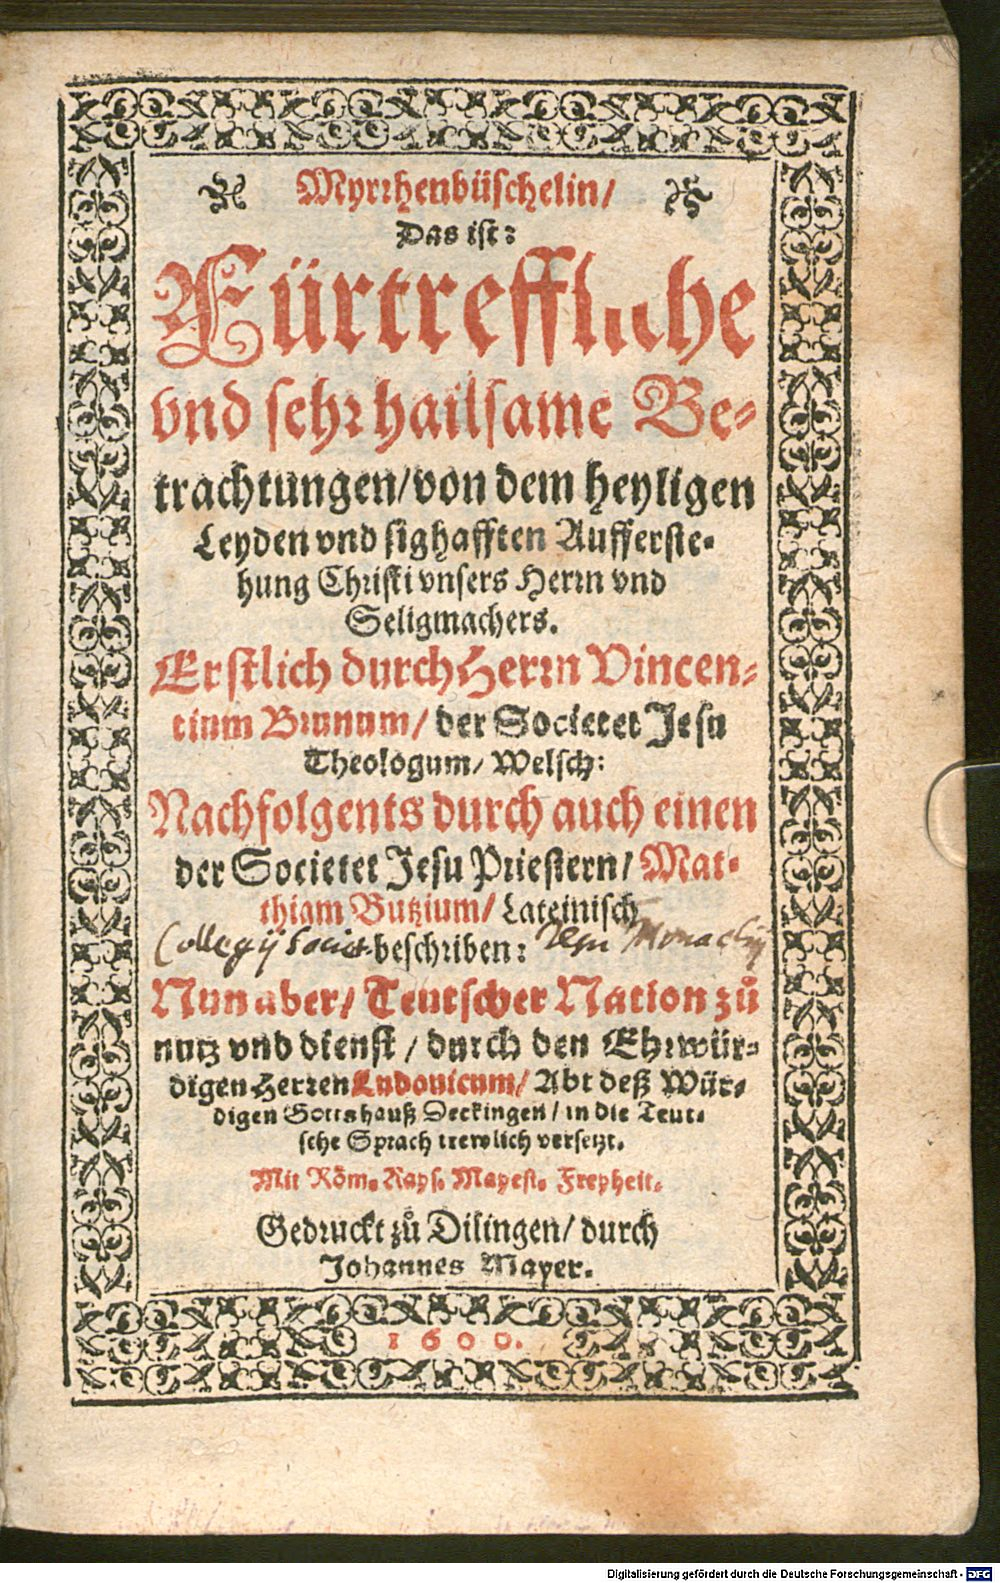 Myrrhenbüschelin/
Das ist:
Fürtreffliche
vnd sehr hailsame Be-
trachtungen/ von dem heyligen
Leyden vnd sighafften Aufferste-
hung Christi vnsers Herrn vnd
Seligmachers.
Erstlich durch Herrn Vincen-
tium Brunum/ der Societet Jesu
Theologum/ Welsch:
Nachfolgents durch auch einen
der Societet Jesu Priestern/ Mat-
thiam Butzium/ Lateinisch
beschriben:
Collegij Societ. Jesu Monachij
Nun aber/ Teutscher Nation zů
nutz vnd dienst/ durch den Ehrwür-
digen Herren Ludouicum/ Abt deß Wür-
digen Gottshauß Deckingen/ in die Teut-
sche Sprach trewlich versetzt.
Mit Röm. Kays. Mayest. Freyheit.
Gedruckt zů Dilingen/ durch
Johannes Mayer.
1600.
Digitalisierung gefördert durch die Deutsche Forschungsgemeinschaft - DFG